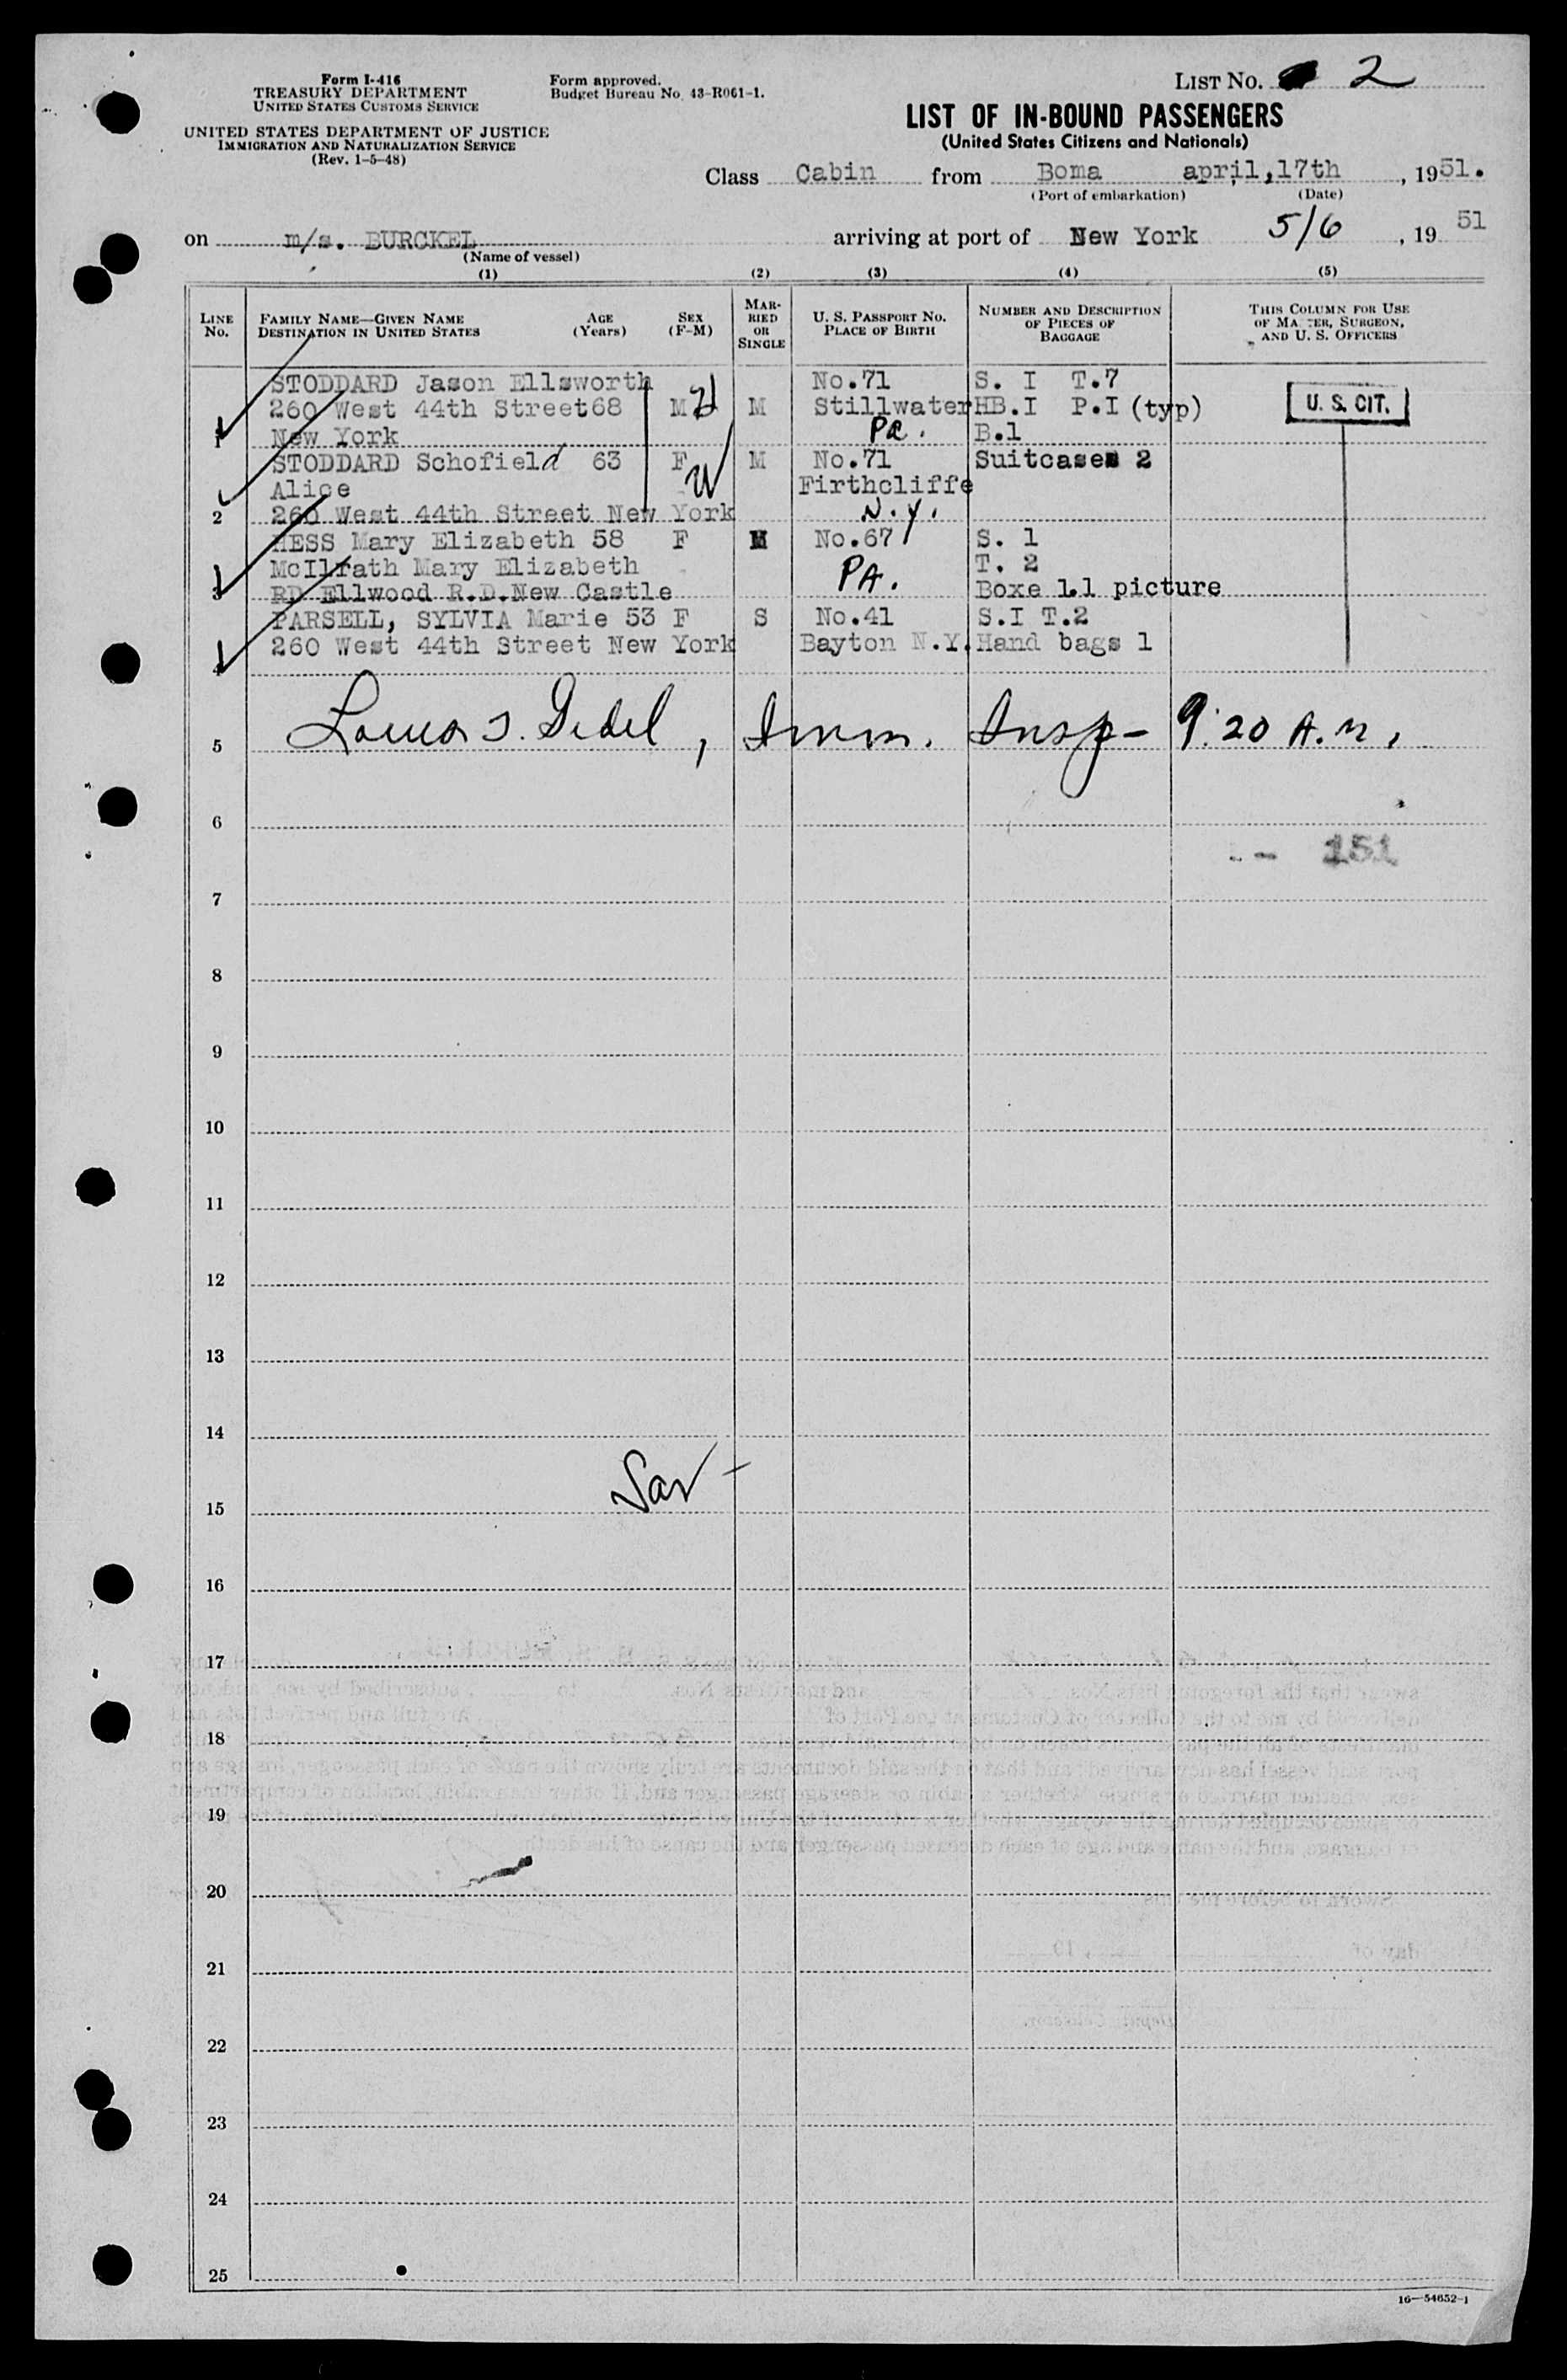 Form I-416
TREASURY DEPARTMENT
UNITED STATES CUSTOMS SERVICE
UNITED STATES DEPARTMENT OF JUSTICE
IMMIGRATION AND NATURALIZATION SERVICE
(Rev. 1-5-48)
Form approved.
Budget Bureau No. 43-R061-1.
LIST NO. 2
LIST OF IN-BOUND PASSENGERS
(United States Citizens and Nationals)
Class Cabin from Boma april,17th, 1951.
(Port of embarkation) (Date)
on m/s. BURCKEL arriving at port of New York 5/6, 19 51
(Name of vessel)
(1) (2) (3) (4) (5)
LINE NO.
FAMILY NAME—GIVEN NAME
DESTINATION IN UNITED STATES
AGE (Years)
SEX (F-M)
MARRIED OR SINGLE
U. S. PASSPORT NO.
PLACE OF BIRTH
NUMBER AND DESCRIPTION OF PIECES OF BAGGAGE
THIS COLUMN FOR USE OF MASTER, SURGEON, AND U. S. OFFICERS
STODDARD Jason Ellsworth No.71 S. I T.7
260 West 44th Street 68 M M Stillwater HB.I P.I (typ) U. S. CIT.
1 New York Pa. B.1
STODDARD Schofield 63 F M No.71 Suitcases 2
Alice W Firthcliffe
2 260 West 44th Street New York N.Y.
HESS Mary Elizabeth 58 F M No.67 S. 1
McIlrath Mary Elizabeth PA. T. 2
3 RD Ellwood R.D.New Castle Boxe 1.1 picture
PARSELL, SYLVIA Marie 53 F S No.41 S.I T.2
260 West 44th Street New York Bayton N.Y. Hand bags 1
4
5 , Imm. Insp- 9:20 A.M.
6
151
7
8
9
10
11
12
13
14
15
16
17
18
19
20
21
22
23
24
25
16—54652-1